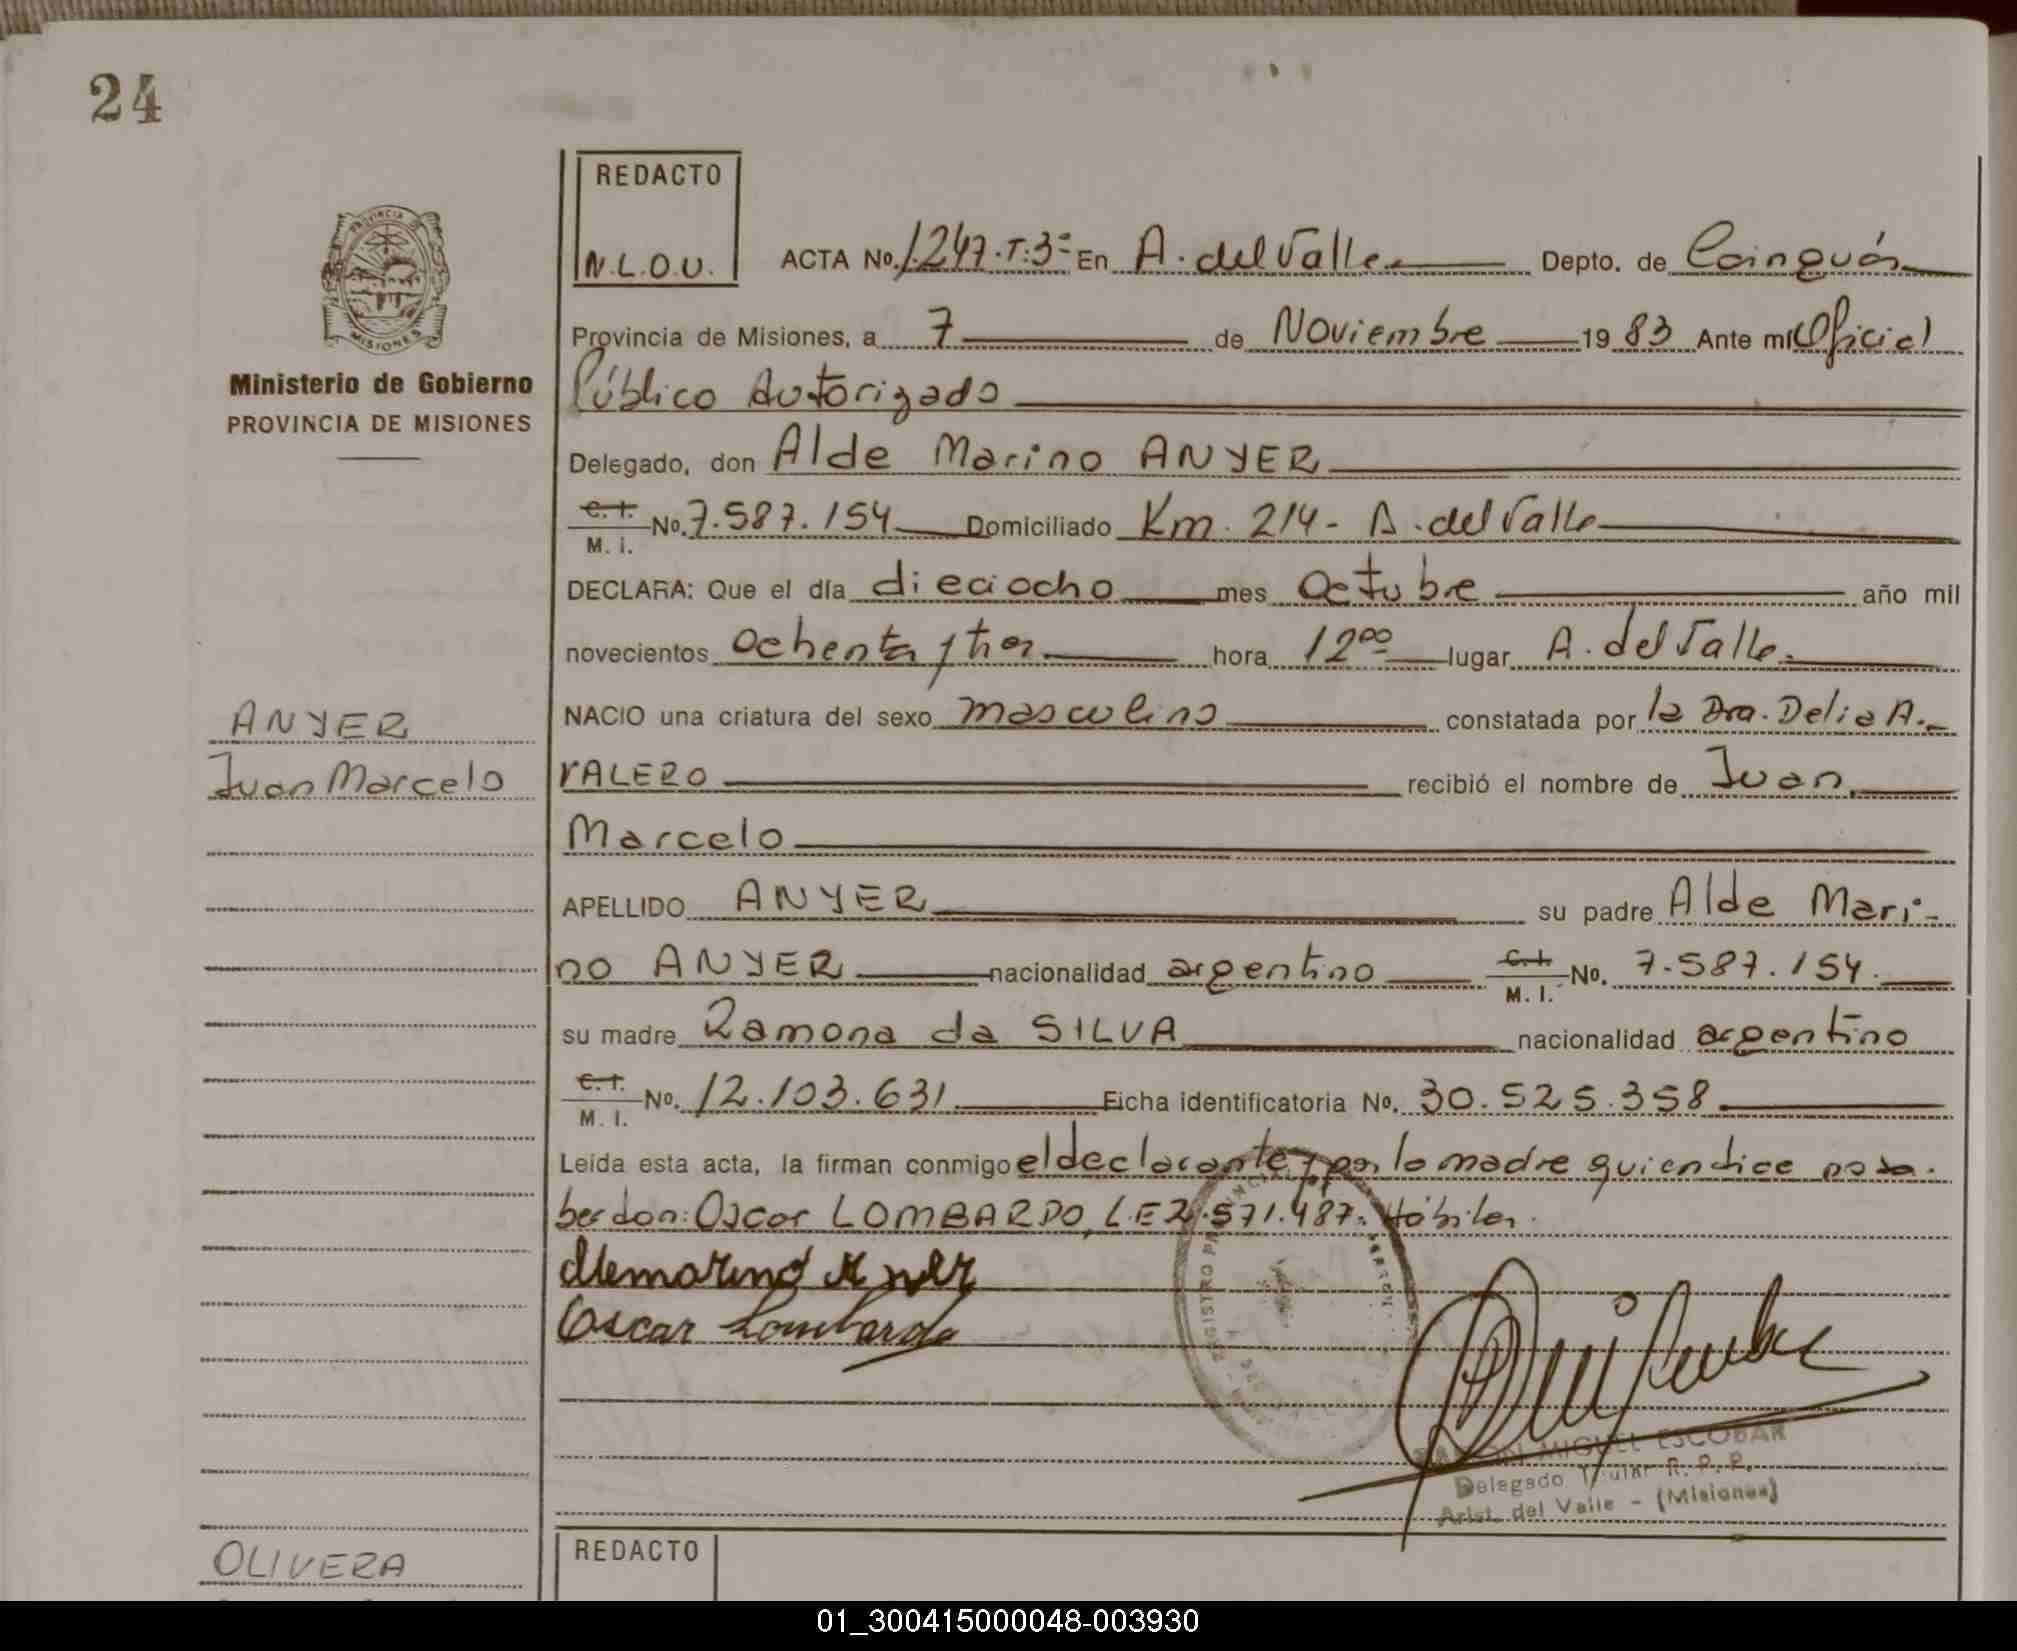 24
REDACTO
N.L.O.U.
PROVINCIA
MISIONES
ACTA No. 1.247.T:3º En A. del Valle Depto. de Cainguás
Provincia de Misiones, a 7 de Noviembre 1983 Ante mi Oficial
Público Autorizado
Ministerio de Gobierno
PROVINCIA DE MISIONES
Delegado, don Alde Marino ANYER
C. I. M. I. No. 7.587.154 Domiciliado Km. 214- A. del Valle
DECLARA: Que el día dieciocho mes Octubre año mil
novecientos ochenta y tres hora 12 00 lugar A. del Valle.
NACIO una criatura del sexo masculino constatada por la Dra. Delia A.
VALERO recibió el nombre de Juan
Marcelo
ANYER
Juan Marcelo
APELLIDO ANYER su padre Alde Mari-
no ANYER nacionalidad argentino C. I. M. I. No. 7.587.154.
su madre Ramona da SILVA nacionalidad argentino
C. I. M. I. No. 12.103.631 Ficha identificatoria No. 30.525.358
Leída esta acta, la firman conmigo el declarante y por la madre quien dice no sa-
ber don: Oscar LOMBARDO, L.E 2.571.487. Hábiles.
Aldemarino Anyer
Oscar Lombardo
RAMON MIGUEL ESCOBAR
Delegado Titular R. P. P.
Arist. del Valle - (Misiones)
OLIVERA
REDACTO
01_300415000048-003930